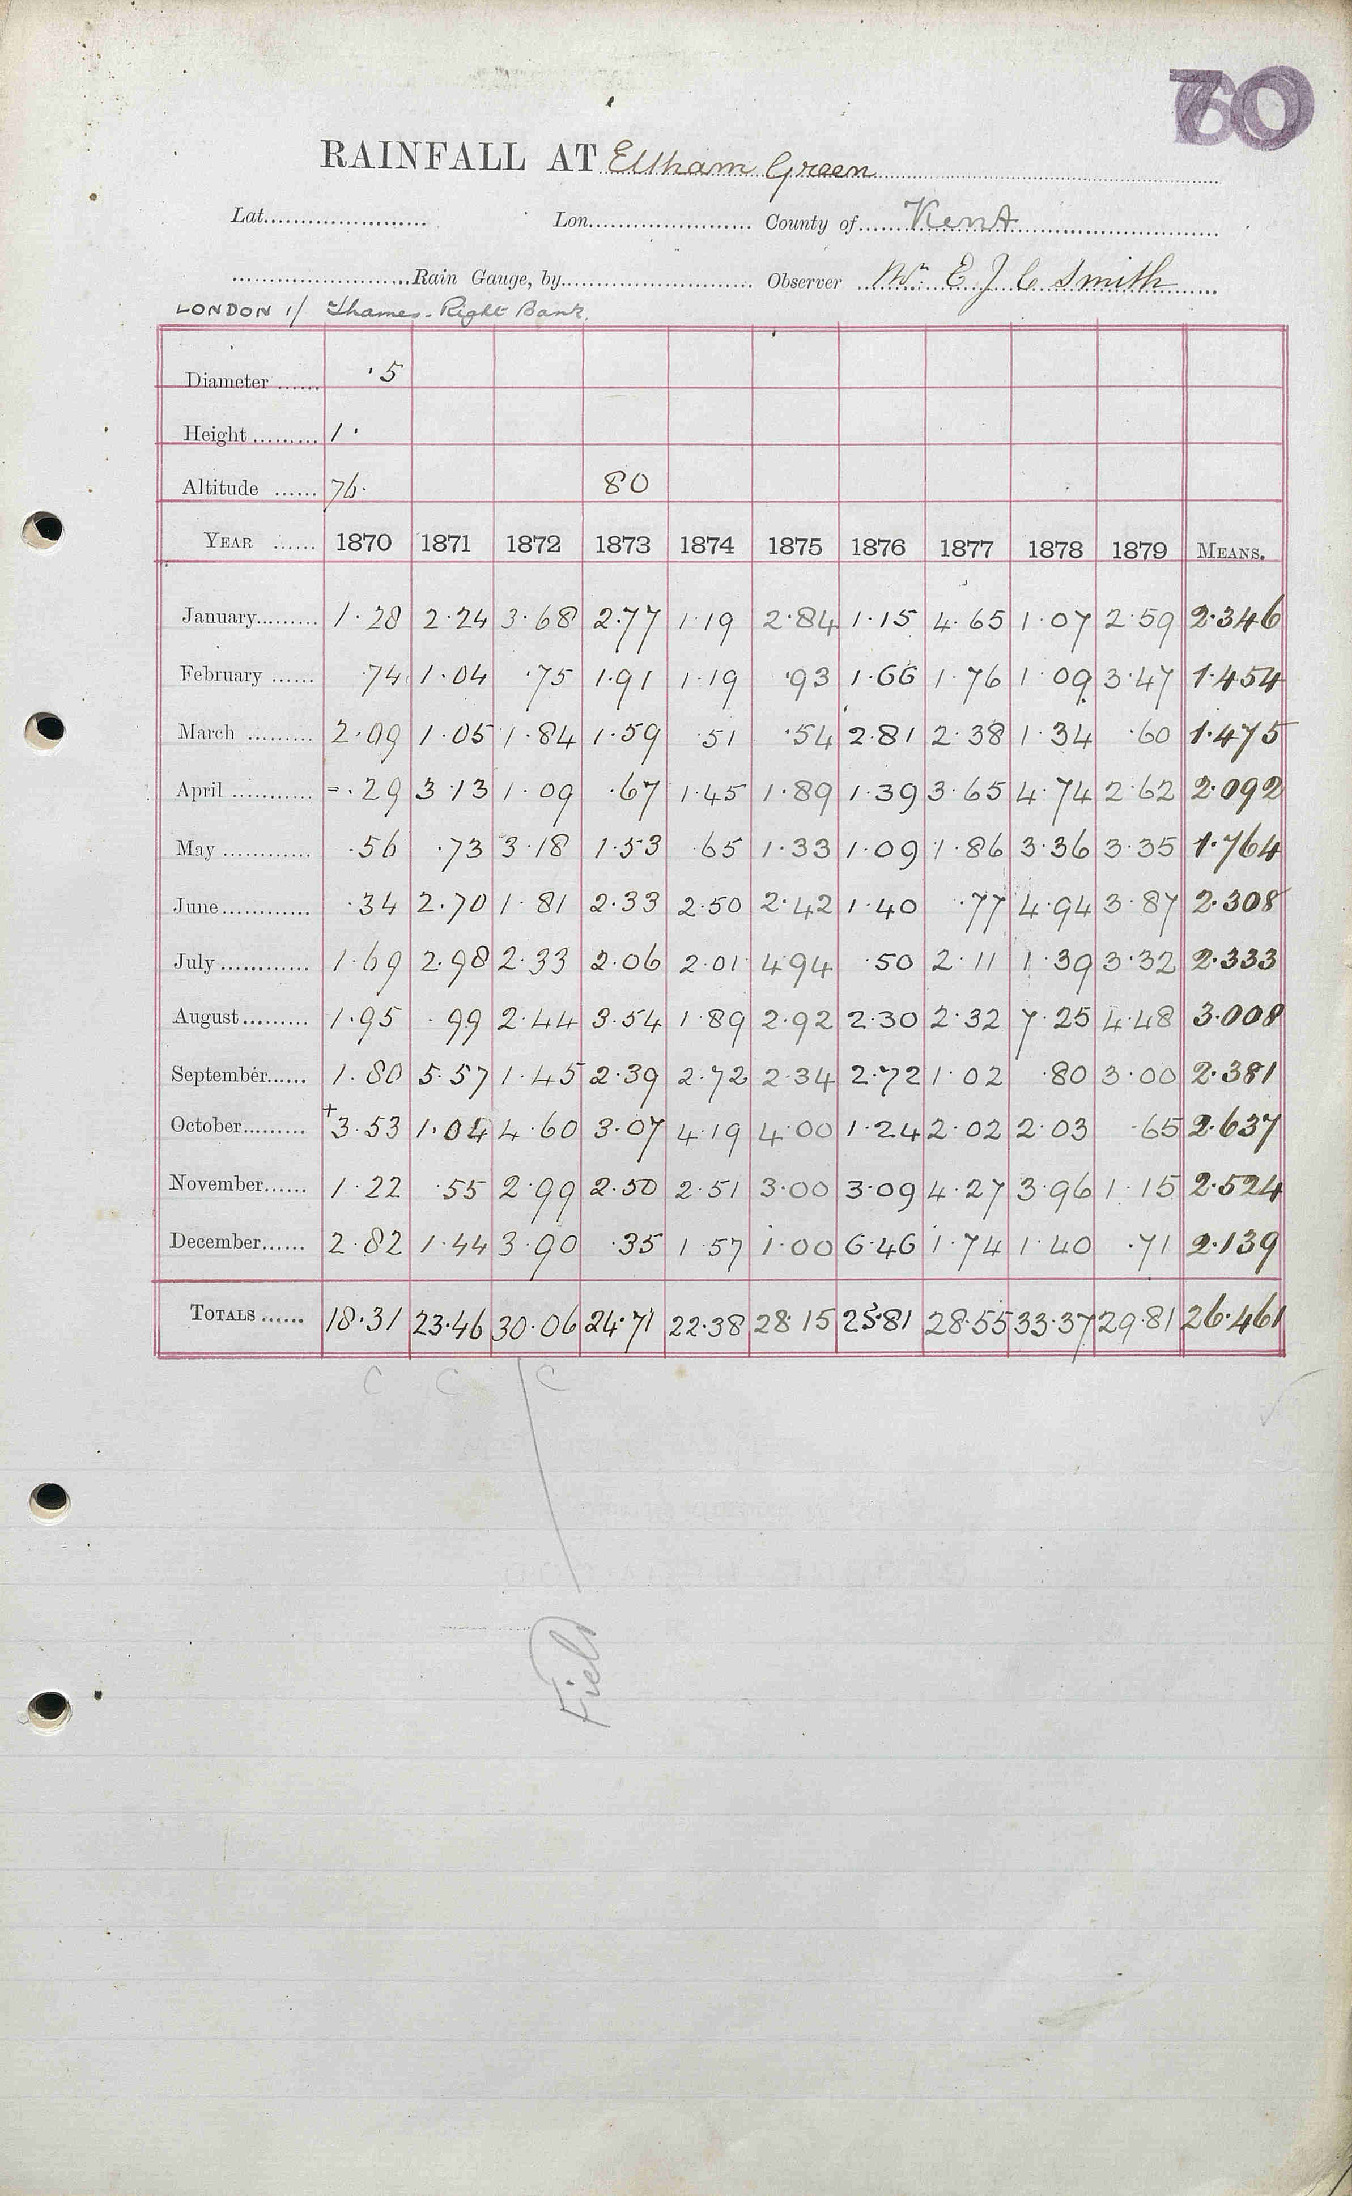 70
RAINFALL AT Eltham Green
Lat. Lon. County of Kent
Rain Gauge, by Observer Mr E J C Smith
LONDON 1/ Thames - Right Bank.
Diameter ·5
Height 1·
Altitude 76· 80
YEAR 1870 1871 1872 1873 1874 1875 1876 1877 1878 1879 MEANS.
January 1·28 2·24 3·68 2·77 1·19 2·84 1·15 4·65 1·07 2·59 2·346
February ·74 1·04 ·75 1·91 1·19 ·93 1·66 1·76 1·09 3·47 1·454
March 2·09 1·05 1·84 1·59 ·51 ·54 2·81 2·38 1·34 ·60 1·475
April -·29 3·13 1·09 ·67 1·45 1·89 1·39 3·65 4·74 2·62 2·092
May ·56 ·73 3·18 1·53 ·65 1·33 1·09 1·86 3·36 3·35 1·764
June ·34 2·70 1·81 2·33 2·50 2·42 1·40 ·77 4·94 3·87 2·308
July 1·69 2·98 2·33 2·06 2·01 4·94 ·50 2·11 1·39 3·32 2·333
August 1·95 ·99 2·44 3·54 1·89 2·92 2·30 2·32 7·25 4·48 3·008
September 1·80 5·57 1·45 2·39 2·72 2·34 2·72 1·02 ·80 3·00 2·381
October +3·53 1·04 4·60 3·07 4·19 4·00 1·24 2·02 2·03 ·65 2·637
November 1·22 ·55 2·99 2·50 2·51 3·00 3·09 4·27 3·96 1·15 2·524
December 2·82 1·44 3·90 ·35 1·57 1·00 6·46 1·74 1·40 ·71 2·139
TOTALS 18·31 23·46 30·06 24·71 22·38 28·15 25·81 28·55 33·37 29·81 26·461
C C C
Field